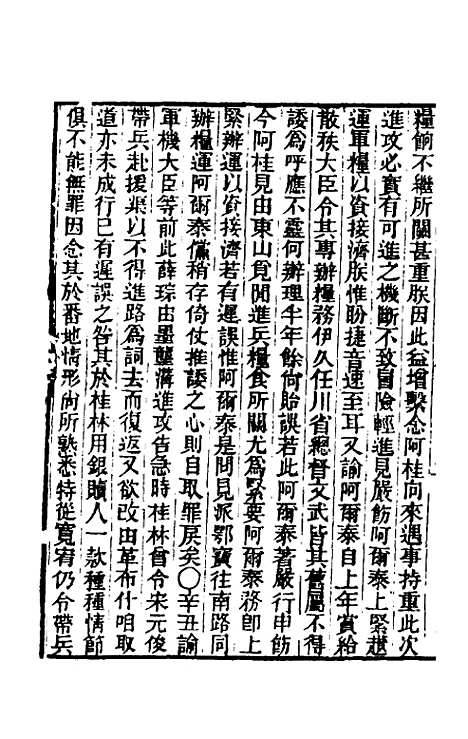 糧餉不繼所關甚重朕因此益增繫念阿桂向來遇事持重此次
進攻必實有可進之機斷不致冒險輕進見嚴飭阿爾泰上緊趲
運軍糧以資接濟朕惟盼捷音速至耳又諭阿爾泰自上年賞給
散秩大臣令其專辦糧務伊久任川省總督文武皆其舊屬不得
諉為呼應不靈何辦理半年餘尙貽誤若此阿爾泰著嚴行申飭
今阿桂見由東山覓間進兵糧食所關尤為緊要阿爾泰務卽上
緊辦運以資接濟若有遲誤惟阿爾泰是問見派鄂寶往南路同
辦糧運阿爾泰儻稍存倚仗推諉之心則自取罪戾矣〇辛丑諭
軍機大臣等前此薛琮由墨壟溝進攻告急時桂林曾令宋元俊
帶兵赴援渠以不得進路為詞去而復返又欲改由革布什咱取
道亦未成行已有遲誤之咎其於桂林用銀贖人一款種種情節
俱不能無罪因念其於番地情形尙所熟悉特從寬宥仍令帶兵